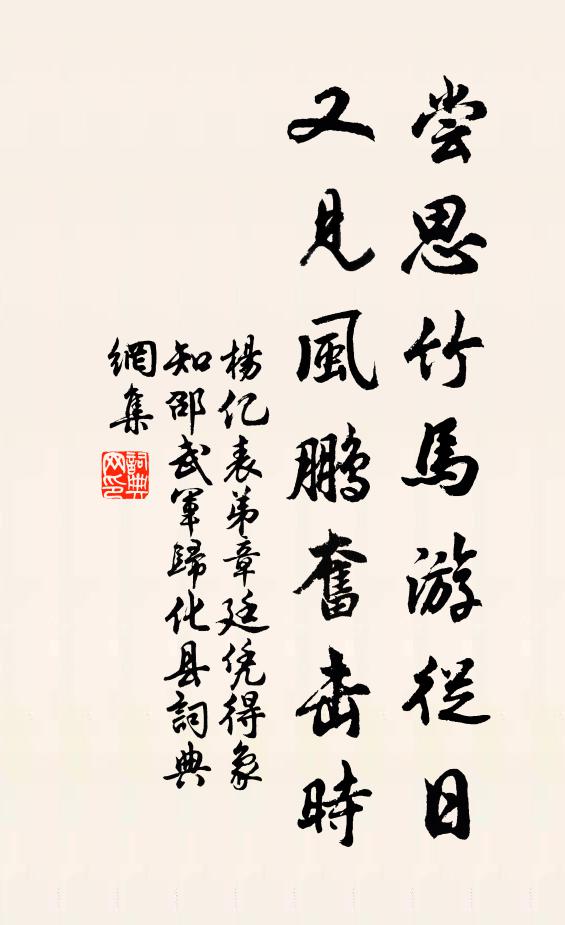 尝思竹馬游從日
又見風鵬奮击時
楊亿表弟章廷凭得象
知邵武軍歸化县詞典
網集
詞典網印